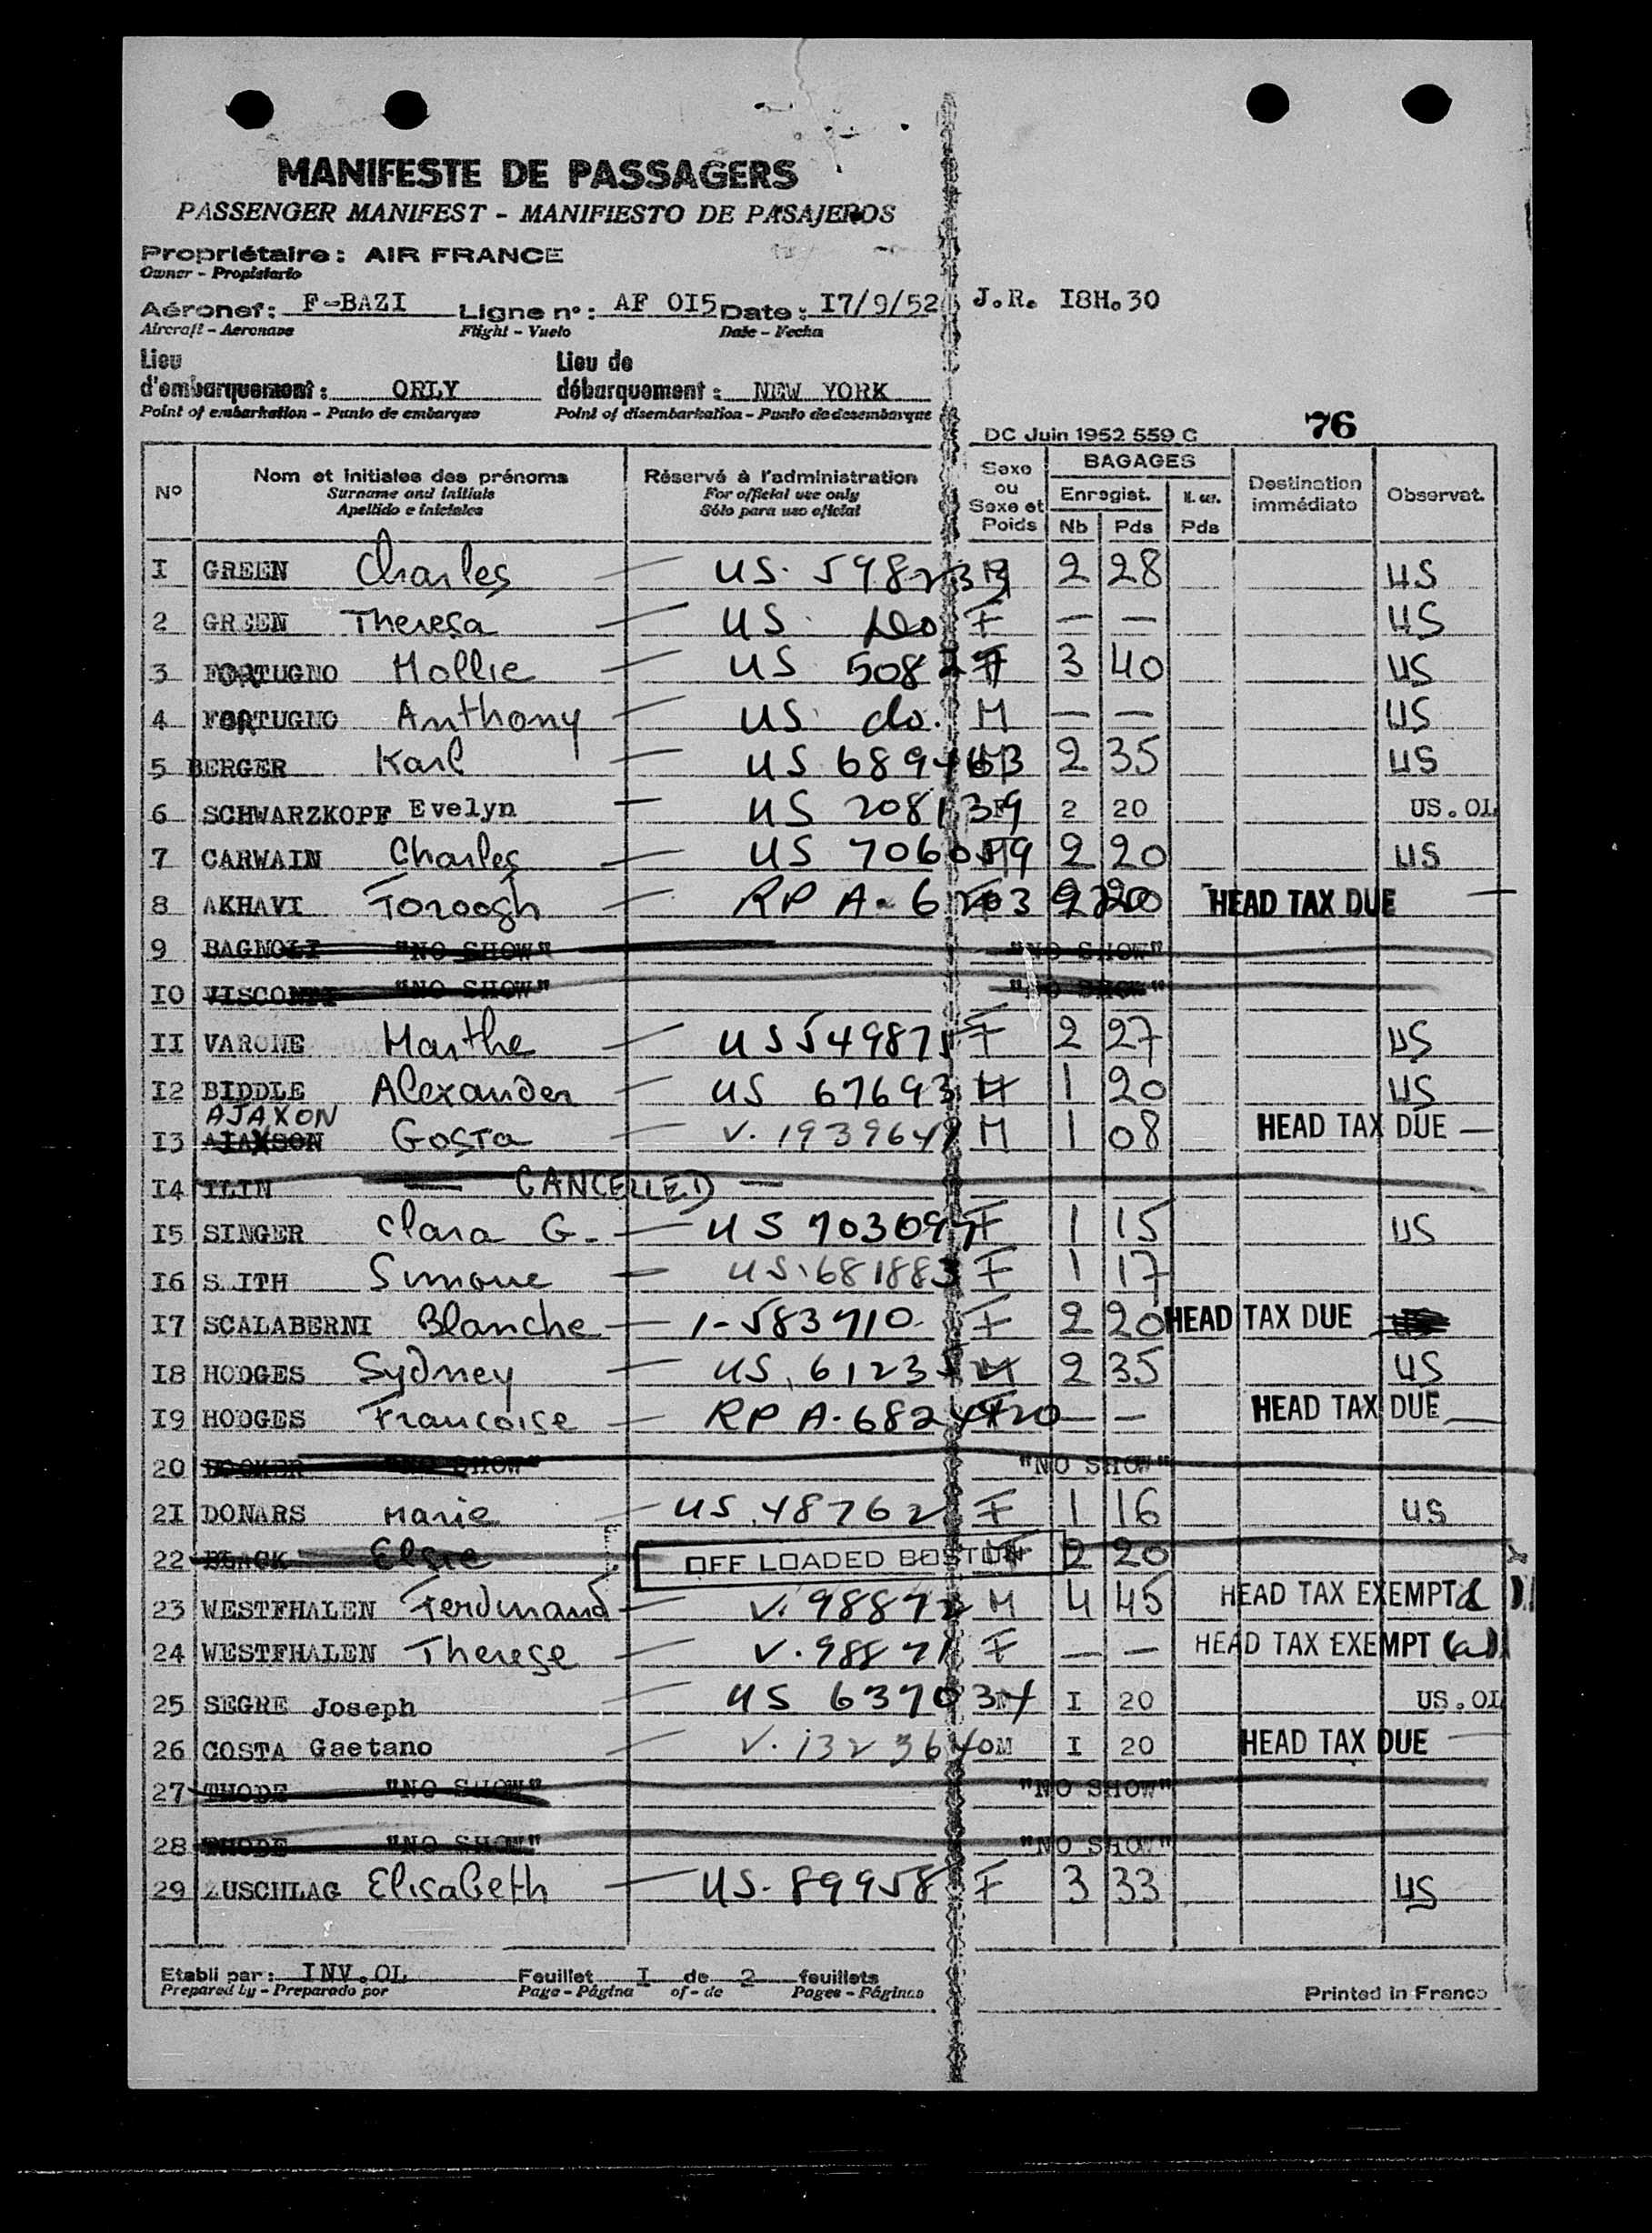 MANIFESTE DE PASSAGERS
PASSENGER MANIFEST - MANIFIESTO DE PASAJEROS
Propriétaire : AIR FRANCE
Owner - Propietario
Aéronef : F-BAZI Ligne n° : AF OI5 Date : I7/9/52 J.R. I8H.30
Aircraft - Aeronave Flight - Vuelo Date - Fecha
Lieu Lieu de
d'embarquement : ORLY débarquement : NEW YORK
Point of embarkation - Punto de embarque Point of disembarkation - Punto de desembarque
DC Juin 1952 559 C 76
N° Nom et initiales des prénoms Réservé à l'administration Sexe ou Sexe et Poids BAGAGES Destination immédiate Observat.
Surname and initials For official use only Enregist.
Apellido e iniciales Sólo para uso oficial Nb Pds Pds
I GREEN Charles — US. 598233 2 28 US
2 GREEN Theresa — US. Do F — — US
3 FORTUGNO Mollie — US 508 F 3 40 US
4 FORTUGNO Anthony — US. do. M — — US
5 BERGER Karl — US 2 35 US
6 SCHWARZKOPF Evelyn — US 208139 2 20 US.OL
7 CARWAIN Charles — US 2 20 US
8 AKHAVI Foroogh — RP A- HEAD TAX DUE —
9 BAGNOLI "NO SHOW" "NO SHOW"
IO VISCONTI "NO SHOW" "NO SHOW"
II VARONE Marthe — US 549875 F 2 27 US
I2 BIDDLE Alexander — US 67693 M 1 20 US
AJAXON
I3 AJAXSON Gosta — V. 1939648 M 1 08 HEAD TAX DUE —
I4 ILIN — CANCELLED —
I5 SINGER Clara G. — US 703097 F 1 15 US
I6 S.ITH Simone — US. 681883 F 1 17
I7 SCALABERNI Blanche — 1-583710 F 2 20 HEAD TAX DUE
I8 HODGES Sydney — US. 61235 M 2 35 US
I9 HODGES Francoise — RP A-682 — — HEAD TAX DUE —
20 "NO SHOW" "NO SHOW"
2I DONARS Marie — US. 48762 F 1 16 US
22 BLACK Elsie OFF LOADED BOSTON F 2 20
23 WESTFHALEN Ferdinand — V. 98872 M 4 45 HEAD TAX EXEMPT
24 WESTFHALEN Therese — V. 98871 F — — HEAD TAX EXEMPT (a)
25 SEGRE Joseph US 637034 I 20 US.OL
26 COSTA Gaetano — V. 1323640 M I 20 HEAD TAX DUE —
27 THODE "NO SHOW" "NO SHOW"
28 THODE "NO SHOW" "NO SHOW"
29 ZUSCHLAG Elisabeth — US. 89958 F 3 33 US
Etabli par : INV.OL Feuillet I de 2 feuillets
Prepared by - Preparado por Page - Página of - de Pages - Páginas Printed in France